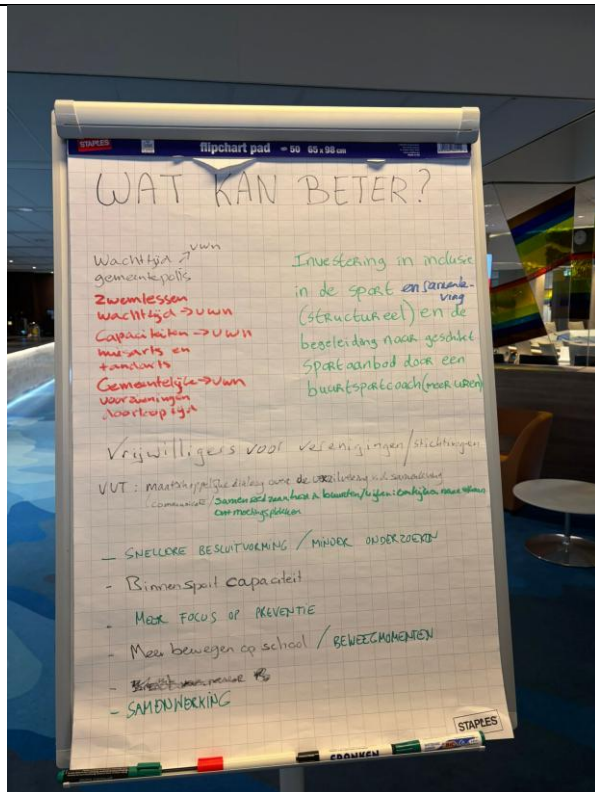 STAPLES
flipchart pad = 50 65 x 98 cm
WAT KAN BETER?
Wachttijd ↗ UWN
gemeentepolis
Zwemlessen
wachttijd → UWN
Capaciteiten → UWN
huisarts en
tandarts
Gemeentelijke → UWN
voorzieningen
doorlooptijd
Investering in inclusie
in de sport en samenle-
ving
(STRuctureel) en de
begeleiding naar geschikt
Sportaanbod door een
buurtsportcoach (meer uren)
Vrijwilligers voor verenigingen/stichtingen
VUT: maatschappelijke dialoog over de
ontmoetingsplekken
- SNELLERE BESLUITVORMING / MINDER ONDERZOEKEN
- Binnensport capaciteit
- MEER FOCUS OP PREVENTIE
- Meer bewegen op school / BEWEEGMOMENTEN
- SAMENWERKING
STAPLES